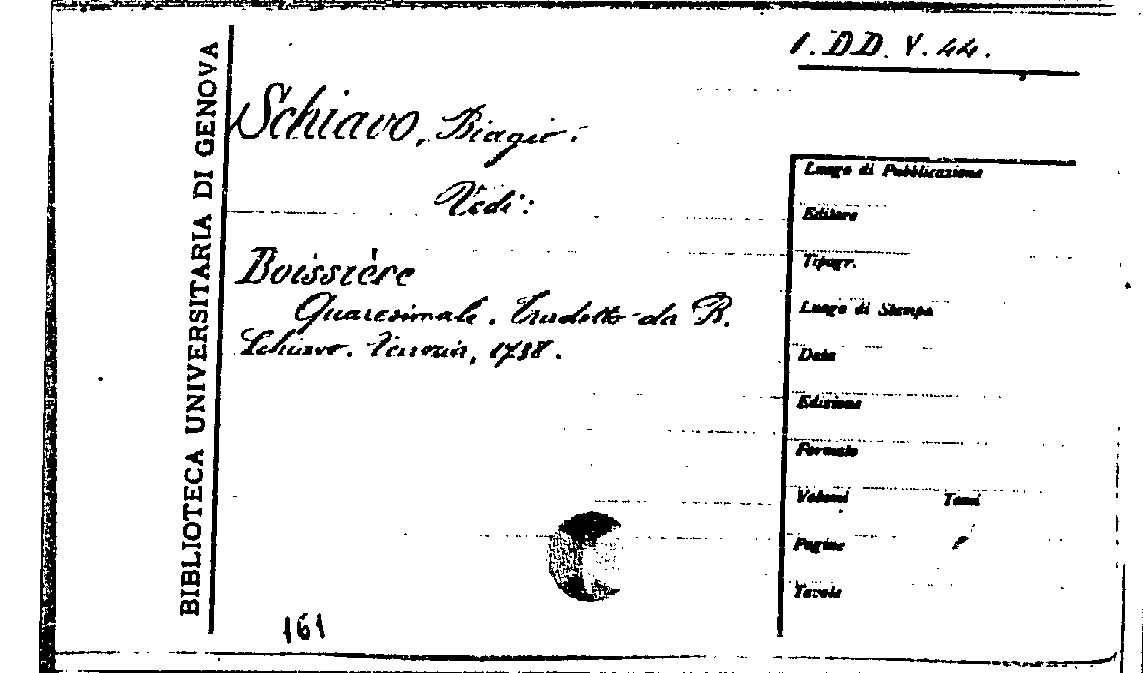 1. DD. V. 44.
BIBLIOTECA UNIVERSITARIA DI GENOVA
Schiavo, Biagio.
Vedi:
Boissière
Quaresimale. Tradotto da B.
Schiavo. Venezia, 1738.
Luogo di Pubblicazione
Editore
Tipogr.
Luogo di Stampa
Data
Edizione
Formato
Volumi Tomi
Pagine
Tavole
161